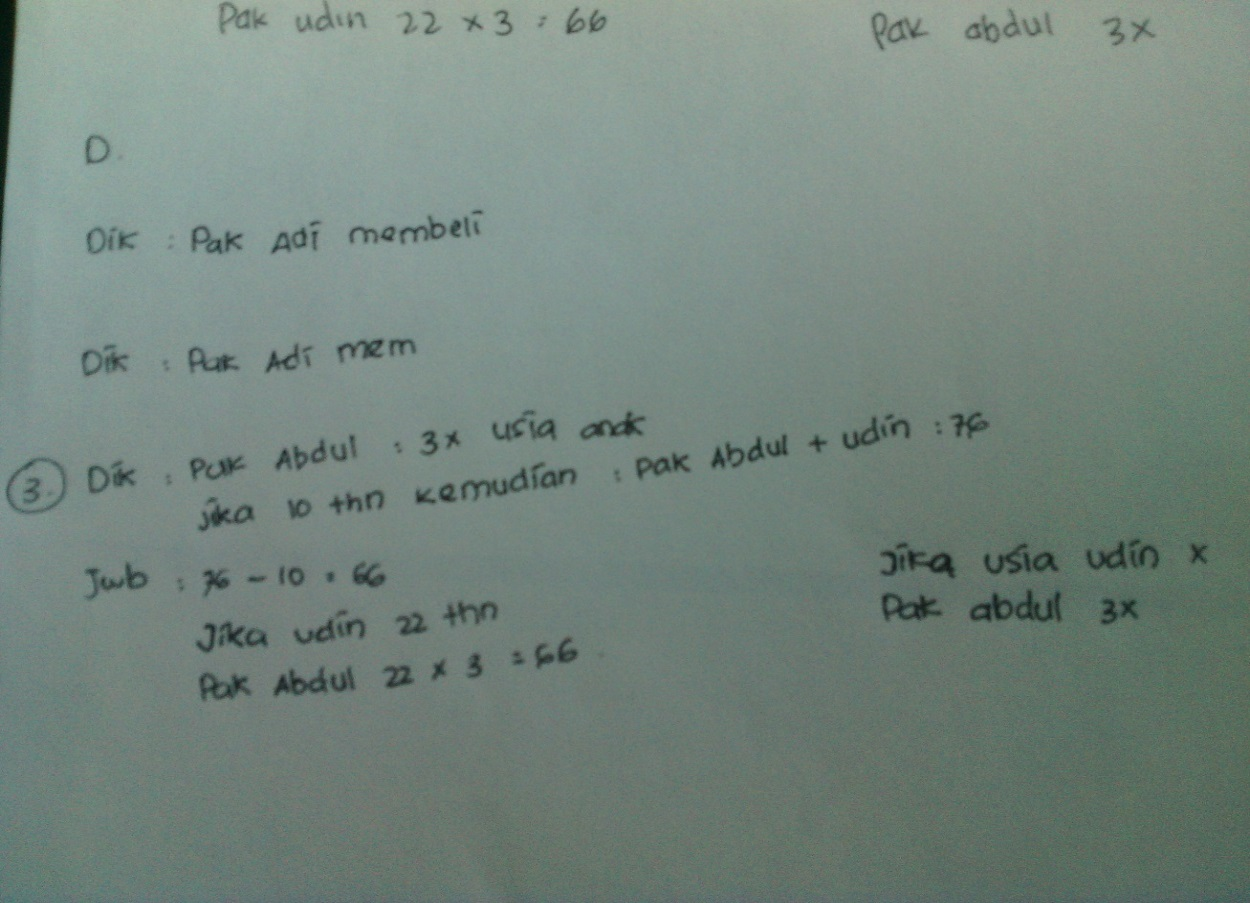 Pak udin 22 x 3 : 66
Pak abdul 3x
D.
Dik : Pak Adi membeli
Dik : Pak Adi mem
3. Dik : Pak Abdul : 3x usia anak
jika 10 thn kemudian : Pak Abdul + udin : 76
Jwb : 76 - 10 = 66
Jika udin 22 thn
Pak Abdul 22 x 3 = 66
Jika usia udin x
Pak abdul 3x